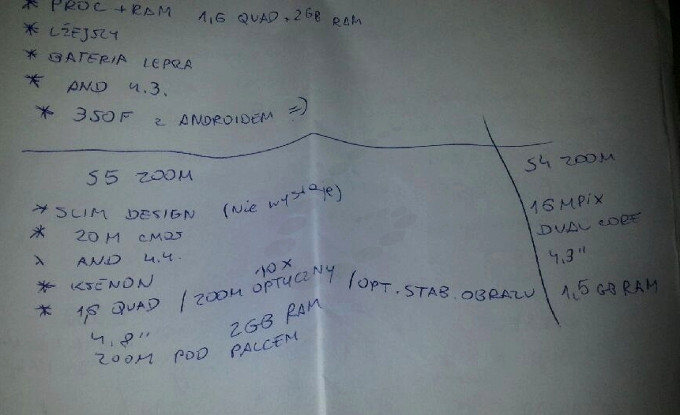 * PROC + RAM 1,6 QUAD, 2GB RAM
* LŻEJSZY
* BATERIA LEPSZA
* AND 4.3.
* 350F z ANDROIDEM =)
S5 ZOOM
* SLIM DESIGN (Nie wystaje)
* 20M CMOS
* AND 4.4.
* KSENON
* 1,6 QUAD / ZOOM OPTYCZNY 10X / OPT. STAB. OBRAZU
4,8" 2GB RAM
ZOOM POD PALCEM
S4 ZOOM
16 MPIX
DUAL CORE
4,3"
1,5 GB RAM